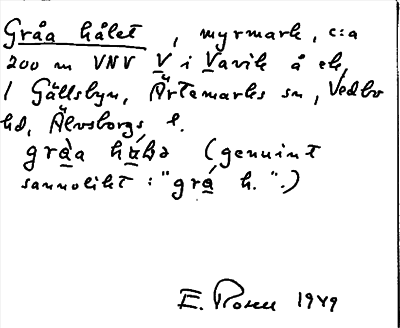 Gråa hålet, myrmark, c:a
200 m VNV V i Vavik å ek,
1 Gällsbyn, Ärtemarks sn, Vedbo
hd, Älvsborgs l.
gràa hǻlə (genuint
sannolikt: "grá h.".)
E. Rosen 1949